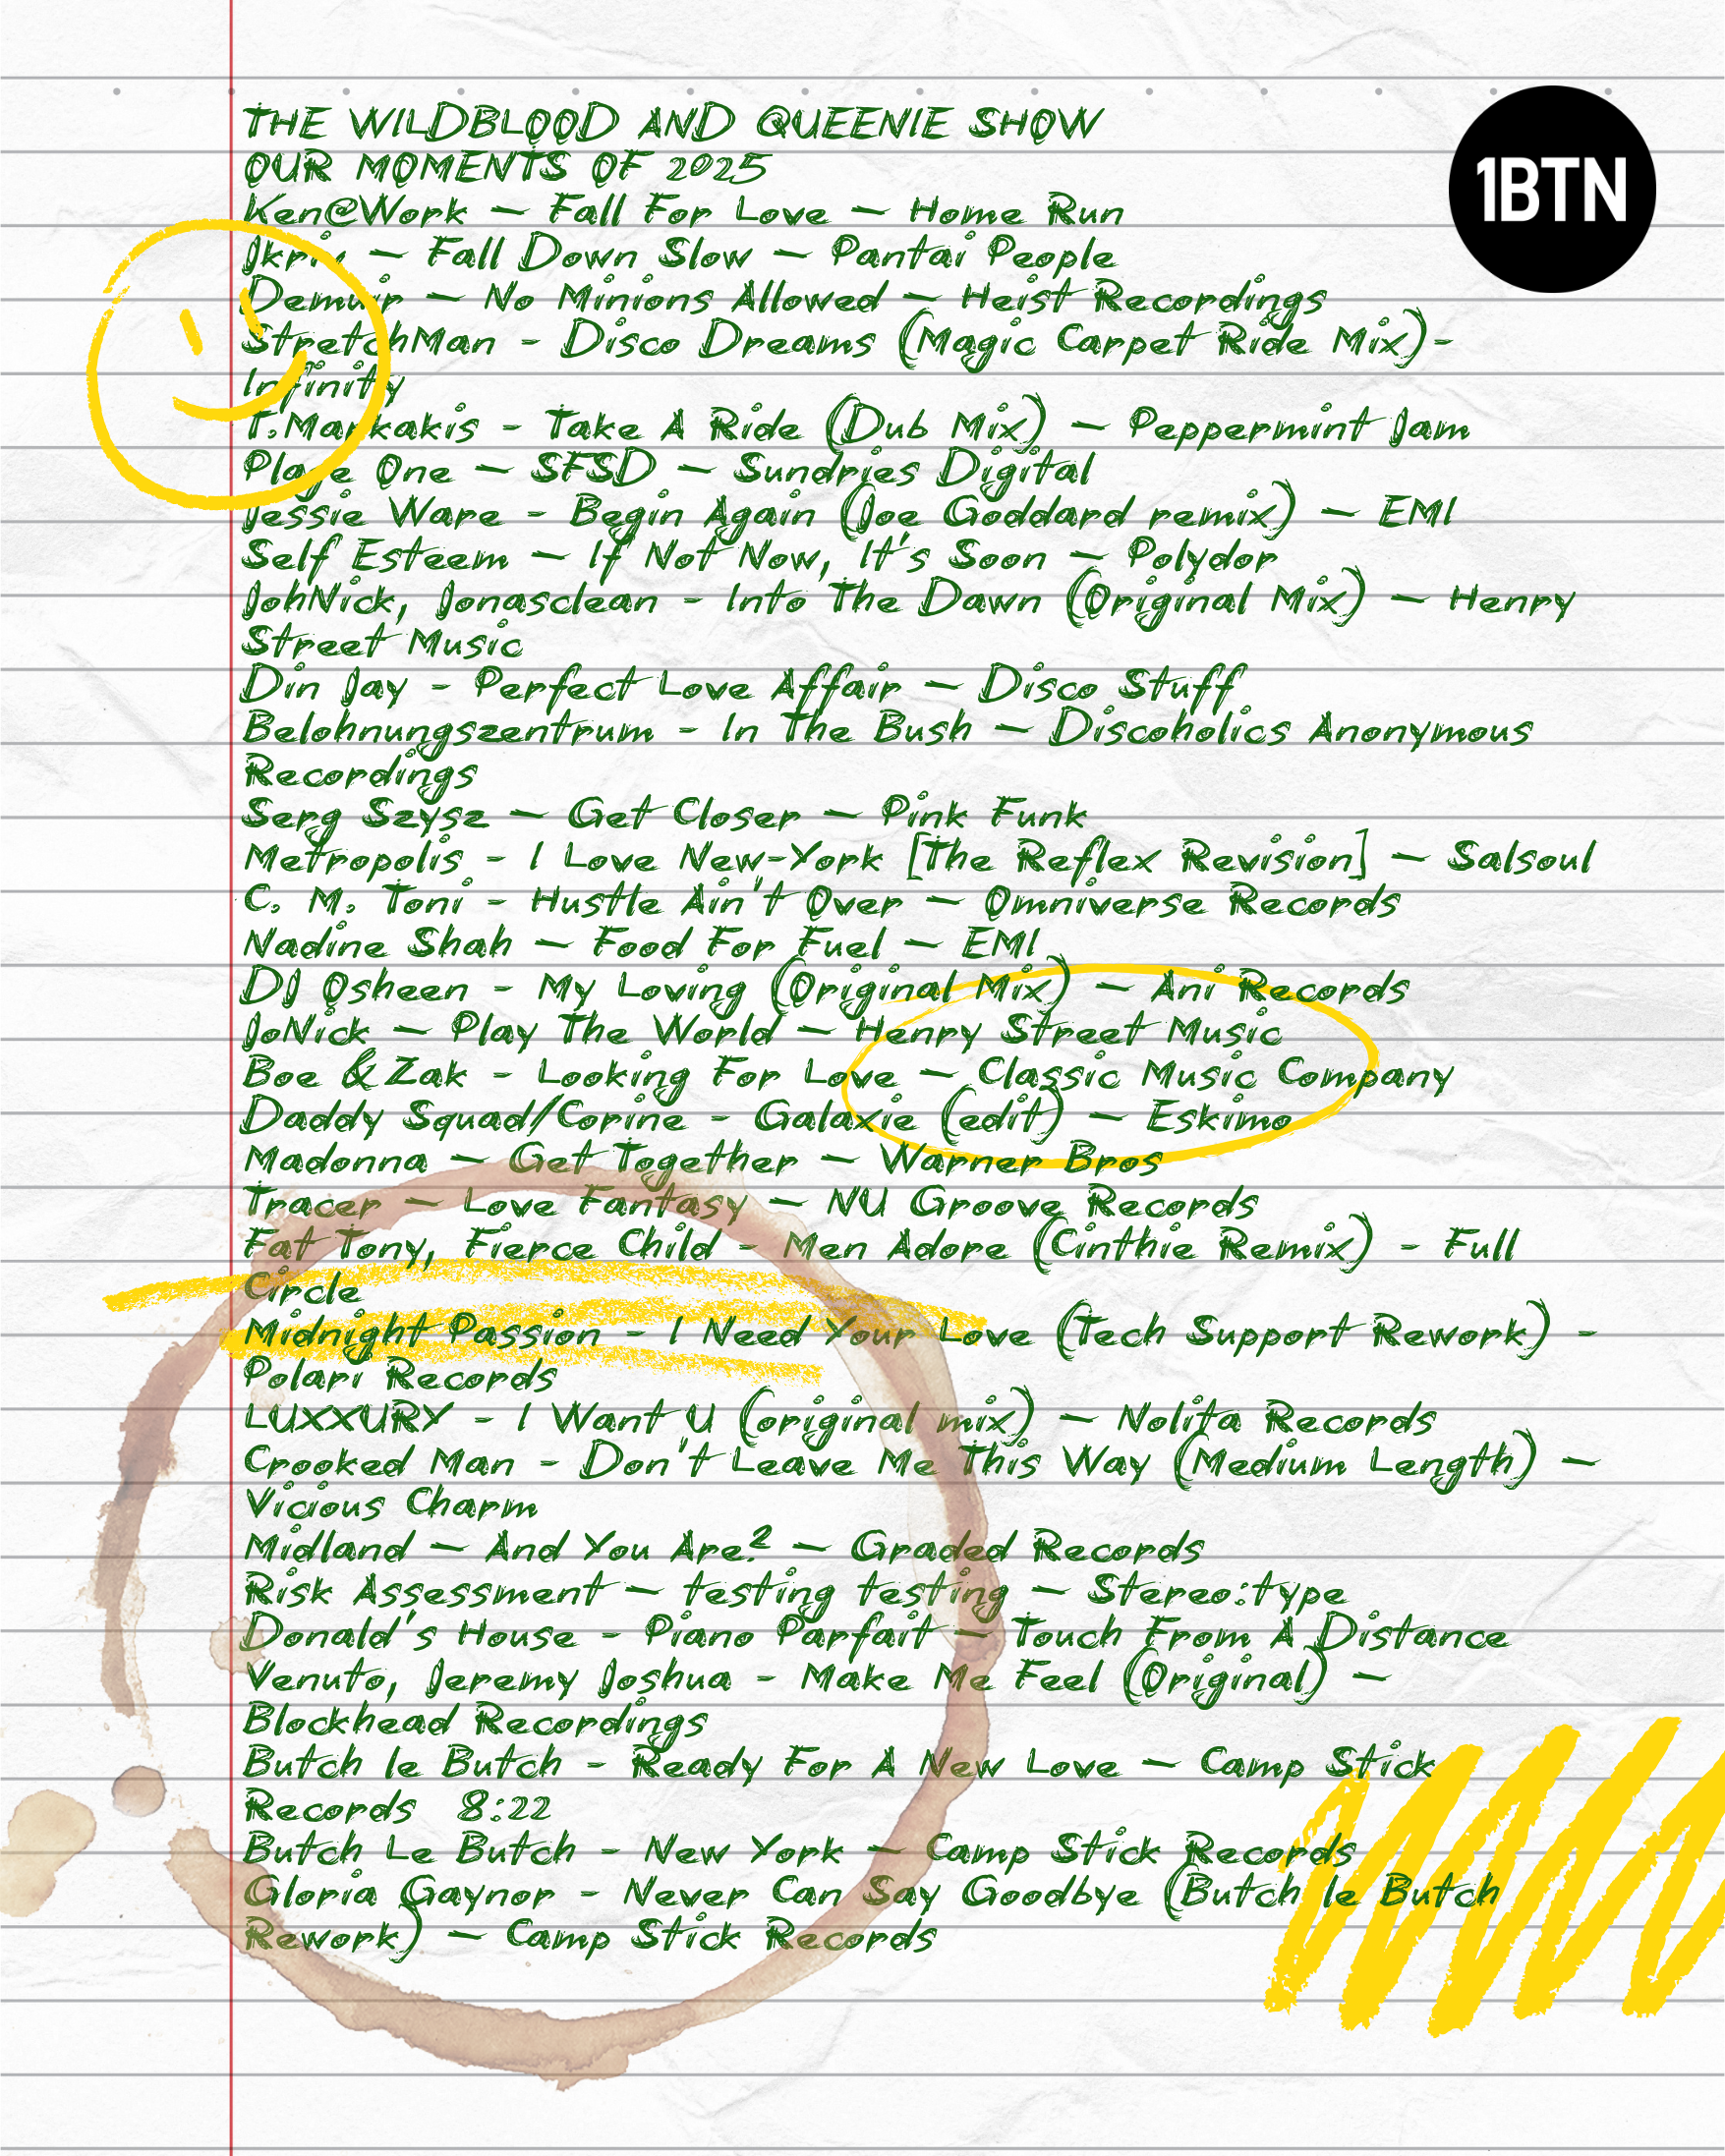 THE WILDBLOOD AND QUEENIE SHOW
OUR MOMENTS OF 2025
Ken@Work – Fall For Love – Home Run
Jkriv – Fall Down Slow – Pantai People
Demuir – No Minions Allowed – Heist Recordings
StretchMan - Disco Dreams (Magic Carpet Ride Mix)-
Infinity
T.Markakis - Take A Ride (Dub Mix) – Peppermint Jam
Plage One – SFSD – Sundries Digital
Jessie Ware - Begin Again (Joe Goddard remix) – EMI
Self Esteem – If Not Now, It's Soon – Polydor
JohNick, Jonasclean - Into The Dawn (Original Mix) – Henry
Street Music
Din Jay - Perfect Love Affair – Disco Stuff
Belohnungszentrum - In The Bush – Discoholics Anonymous
Recordings
Serg Szysz – Get Closer – Pink Funk
Metropolis - I Love New-York [The Reflex Revision] – Salsoul
C. M. Toni - Hustle Ain't Over – Omniverse Records
Nadine Shah – Food For Fuel – EMI
DJ Osheen - My Loving (Original Mix) – Ani Records
JoNick – Play The World – Henry Street Music
Boe & Zak - Looking For Love – Classic Music Company
Daddy Squad/Corine - Galaxie (edit) – Eskimo
Madonna – Get Together – Warner Bros
Tracer – Love Fantasy – NU Groove Records
Fat Tony, Fierce Child - Men Adore (Cinthie Remix) - Full
Circle
Midnight Passion - I Need Your Love (Tech Support Rework) -
Polari Records
LUXXURY - I Want U (original mix) – Nolita Records
Crooked Man - Don't Leave Me This Way (Medium Length) –
Vicious Charm
Midland – And You Are? – Graded Records
Risk Assessment – testing testing – Stereo:type
Donald's House - Piano Parfait – Touch From A Distance
Venuto, Jeremy Joshua - Make Me Feel (Original) –
Blockhead Recordings
Butch le Butch - Ready For A New Love – Camp Stick
Records  8:22
Butch Le Butch - New York – Camp Stick Records
Gloria Gaynor - Never Can Say Goodbye (Butch le Butch
Rework) – Camp Stick Records
1BTN